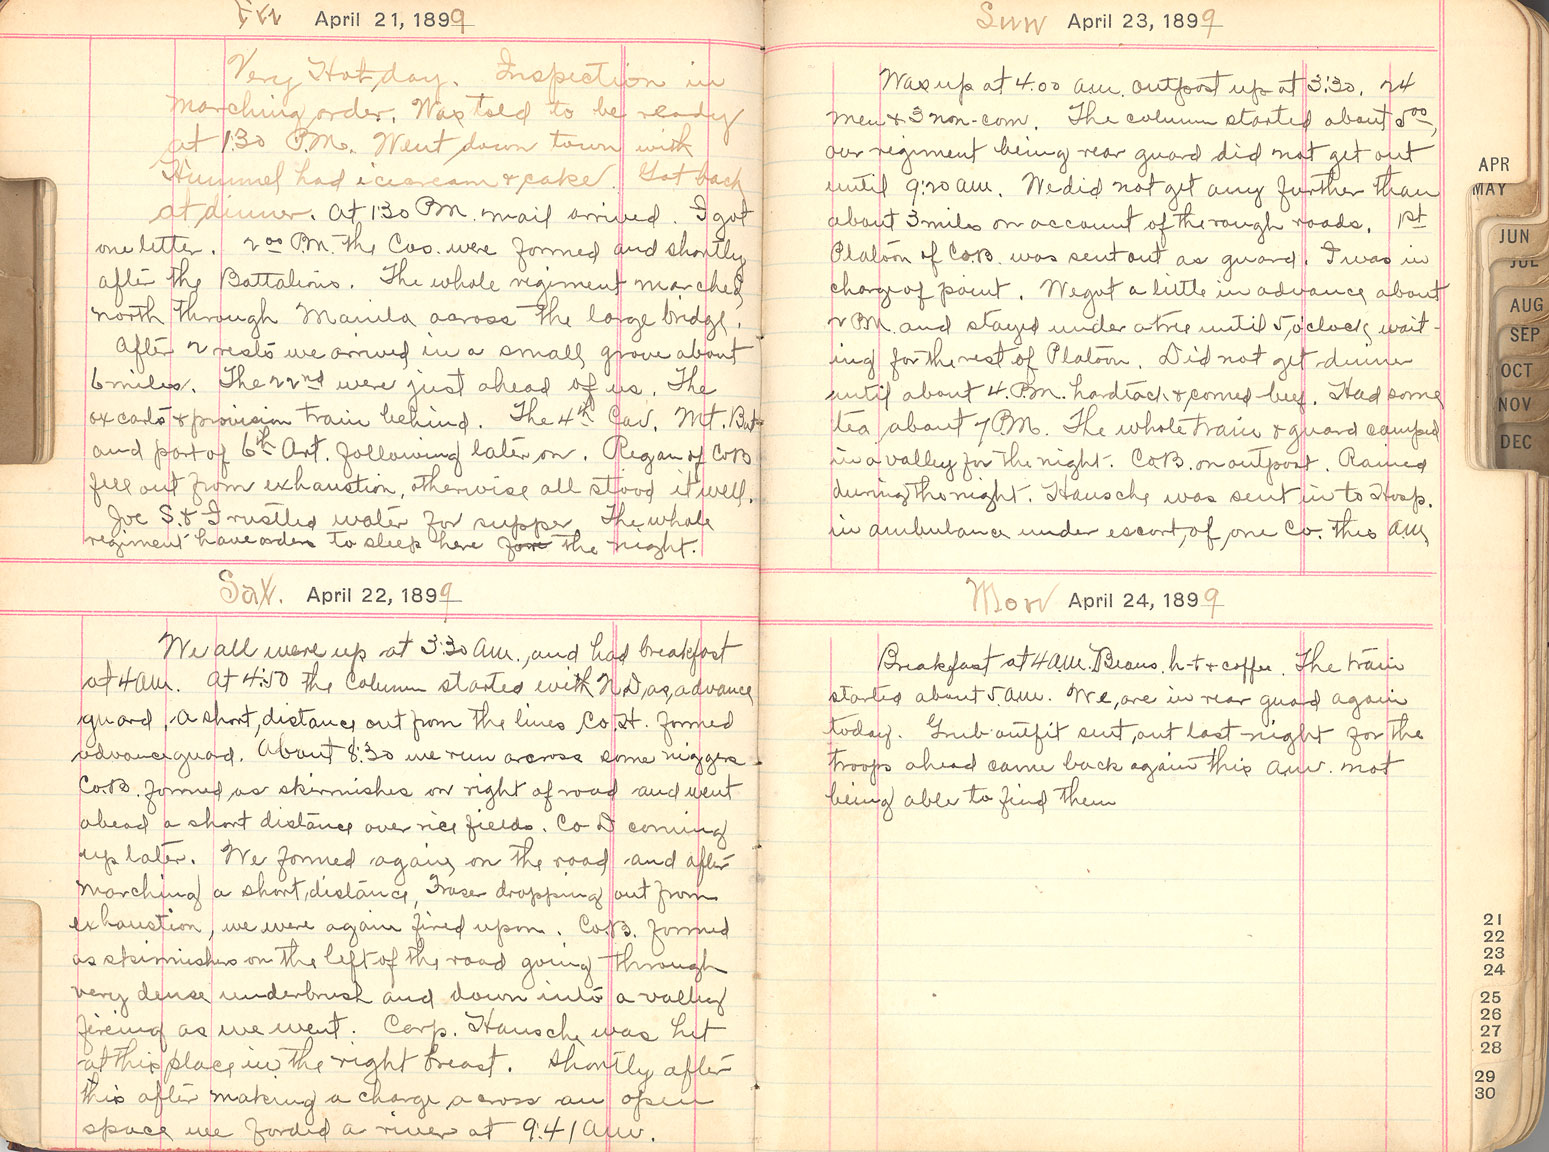 Fri April 21, 1899
Very Hot day. Inspection in
marching order. Was told to be ready
at 1:30 P.M. Went down town with
Hummel had icecream & cake. Got back
at dinner. At 1:30 P.M. mail arrived. I got
one letter. 2:00 P.M. the Cos. were formed and shortly
after the Battalions. The whole regiment marched
north through Manila across the large bridge.
After 2 rests we arrived in a small grove about
6 miles. The 22nd were just ahead of us. The
ox carts & provision train behind. The 4th Cav. Mt. Bat
and part of 6th Art. following later on. Regan of Co B
fell out from exhaustion, otherwise all stood it well.
Joe S. & I rustled water for supper. The whole
regiment have orders to sleep here for the night.
Sat. April 22, 1899
We all were up at 3:30 am., and had breakfast
at 4 am. At 4:50 the Column started with N D, as advance
guard. A short, distance out from the lines Co. H. formed
advance guard. About 8:30 we run across some niggers
Co B. formed as skirmishes on right of road and went
ahead a short distance over rice fields. Co D coming
up later. We formed again, on the road and after
marching a short, distance, Fraser dropping out from
exhaustion, we were again fired upon. Co. B. formed
as skirmishers on the left of the road going through
very dense underbrush and down into a valley
fireing as we went. Corp. Hansche was hit
at this place in the right breast. Shortly after
this after making a charge across an open
space we forded a river at 9:41 am.
Sun April 23, 1899
Was up at 4:00 am. outpost up at 3:30. 24
men & 3 non-com. The column started about 5:00,
our regiment being rear guard did not get out
until 9:20 am. We did not get any further than
about 3 miles on account of the rough roads. 1st
Platoon of Co B. was sent out as guard. I was in
charge of point. We got a little in advance about
2 P.M. and stayed under a tree until 5, o'clock, wait-
ing for the rest of Platoon. Did not get dinner
until about 4 P.M. hardtack & corned beef. Had some
tea about 7 P.M. The whole train & guard camped
in a valley for the night. Co. B. on outpost. Rained
during the night. Hansche was sent in to Hosp.
in ambulance under escort, of one Co. this am,
Mon April 24, 1899
Breakfast at 4 a.m. Beans h-t & coffee. The train
started about 5 am. We, are in rear guard again
today. Grub outfit sent, out last night for the
troops ahead came back again this am. not
being able to find them
APR
MAY
JUN
JUL
AUG
SEP
OCT
NOV
DEC
21
22
23
24
25
26
27
28
29
30